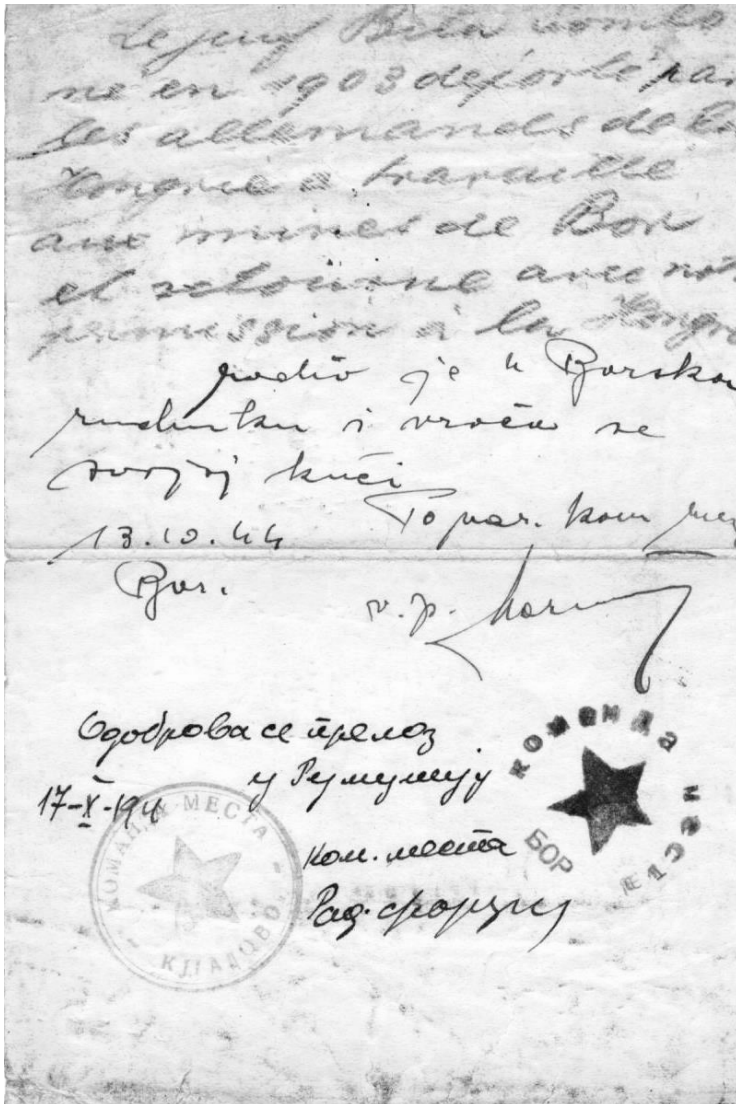 Le juif Bela
né en 1903 déporté par
les allemands de la
Hongrie a travaillé
aux mines de Bor
et retourne avec
permission à la
radio je u Borskom
rudniku i vraća se
svojoj kući
13.10.44 Po nar. kom
Bor.
Одоброва се прелоз
у Румунију
17-X-194
Ком. места
Рад.
КОМАНДА МЕСТА
КЛАДОВО
КОМАНДА МЕСТА
БОР